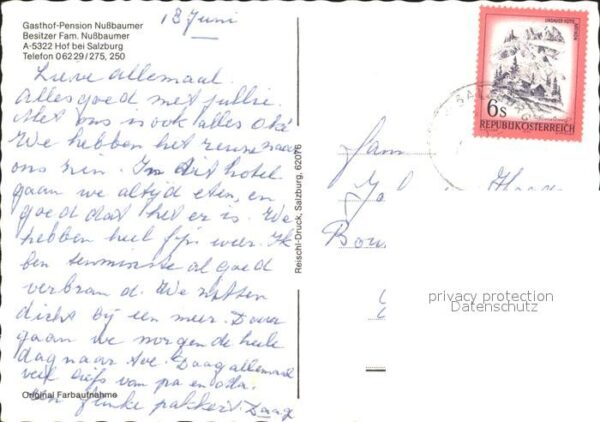 Gasthof-Pension Nußbaumer
Besitzer Fam. Nußbaumer
A-5322 Hof bei Salzburg
Telefon 06229/275, 250
18 Juni
Lieve allemaal.
Alles goed met jullie.
Met ons is ook alles Oké
We hebben het reuze naar
ons zin. In dit hotel
gaan we altijd eten, en
goed dat het er is. We
hebben heel fijn weer. Ik
ben tenminste al goed
verbrand. We zitten
dicht bij een meer. Daar
gaan we morgen de hele
dag naar toe. Daag allemaal
veel liefs van pa en
Een flinke pakkerd. Daag
Original Farbaufnahme
Reischl-Druck, Salzburg, 62076
LINDAUER HÜTTE
6s
REPUBLIK ÖSTERREICH
Fam
privacy protection
Datenschutz